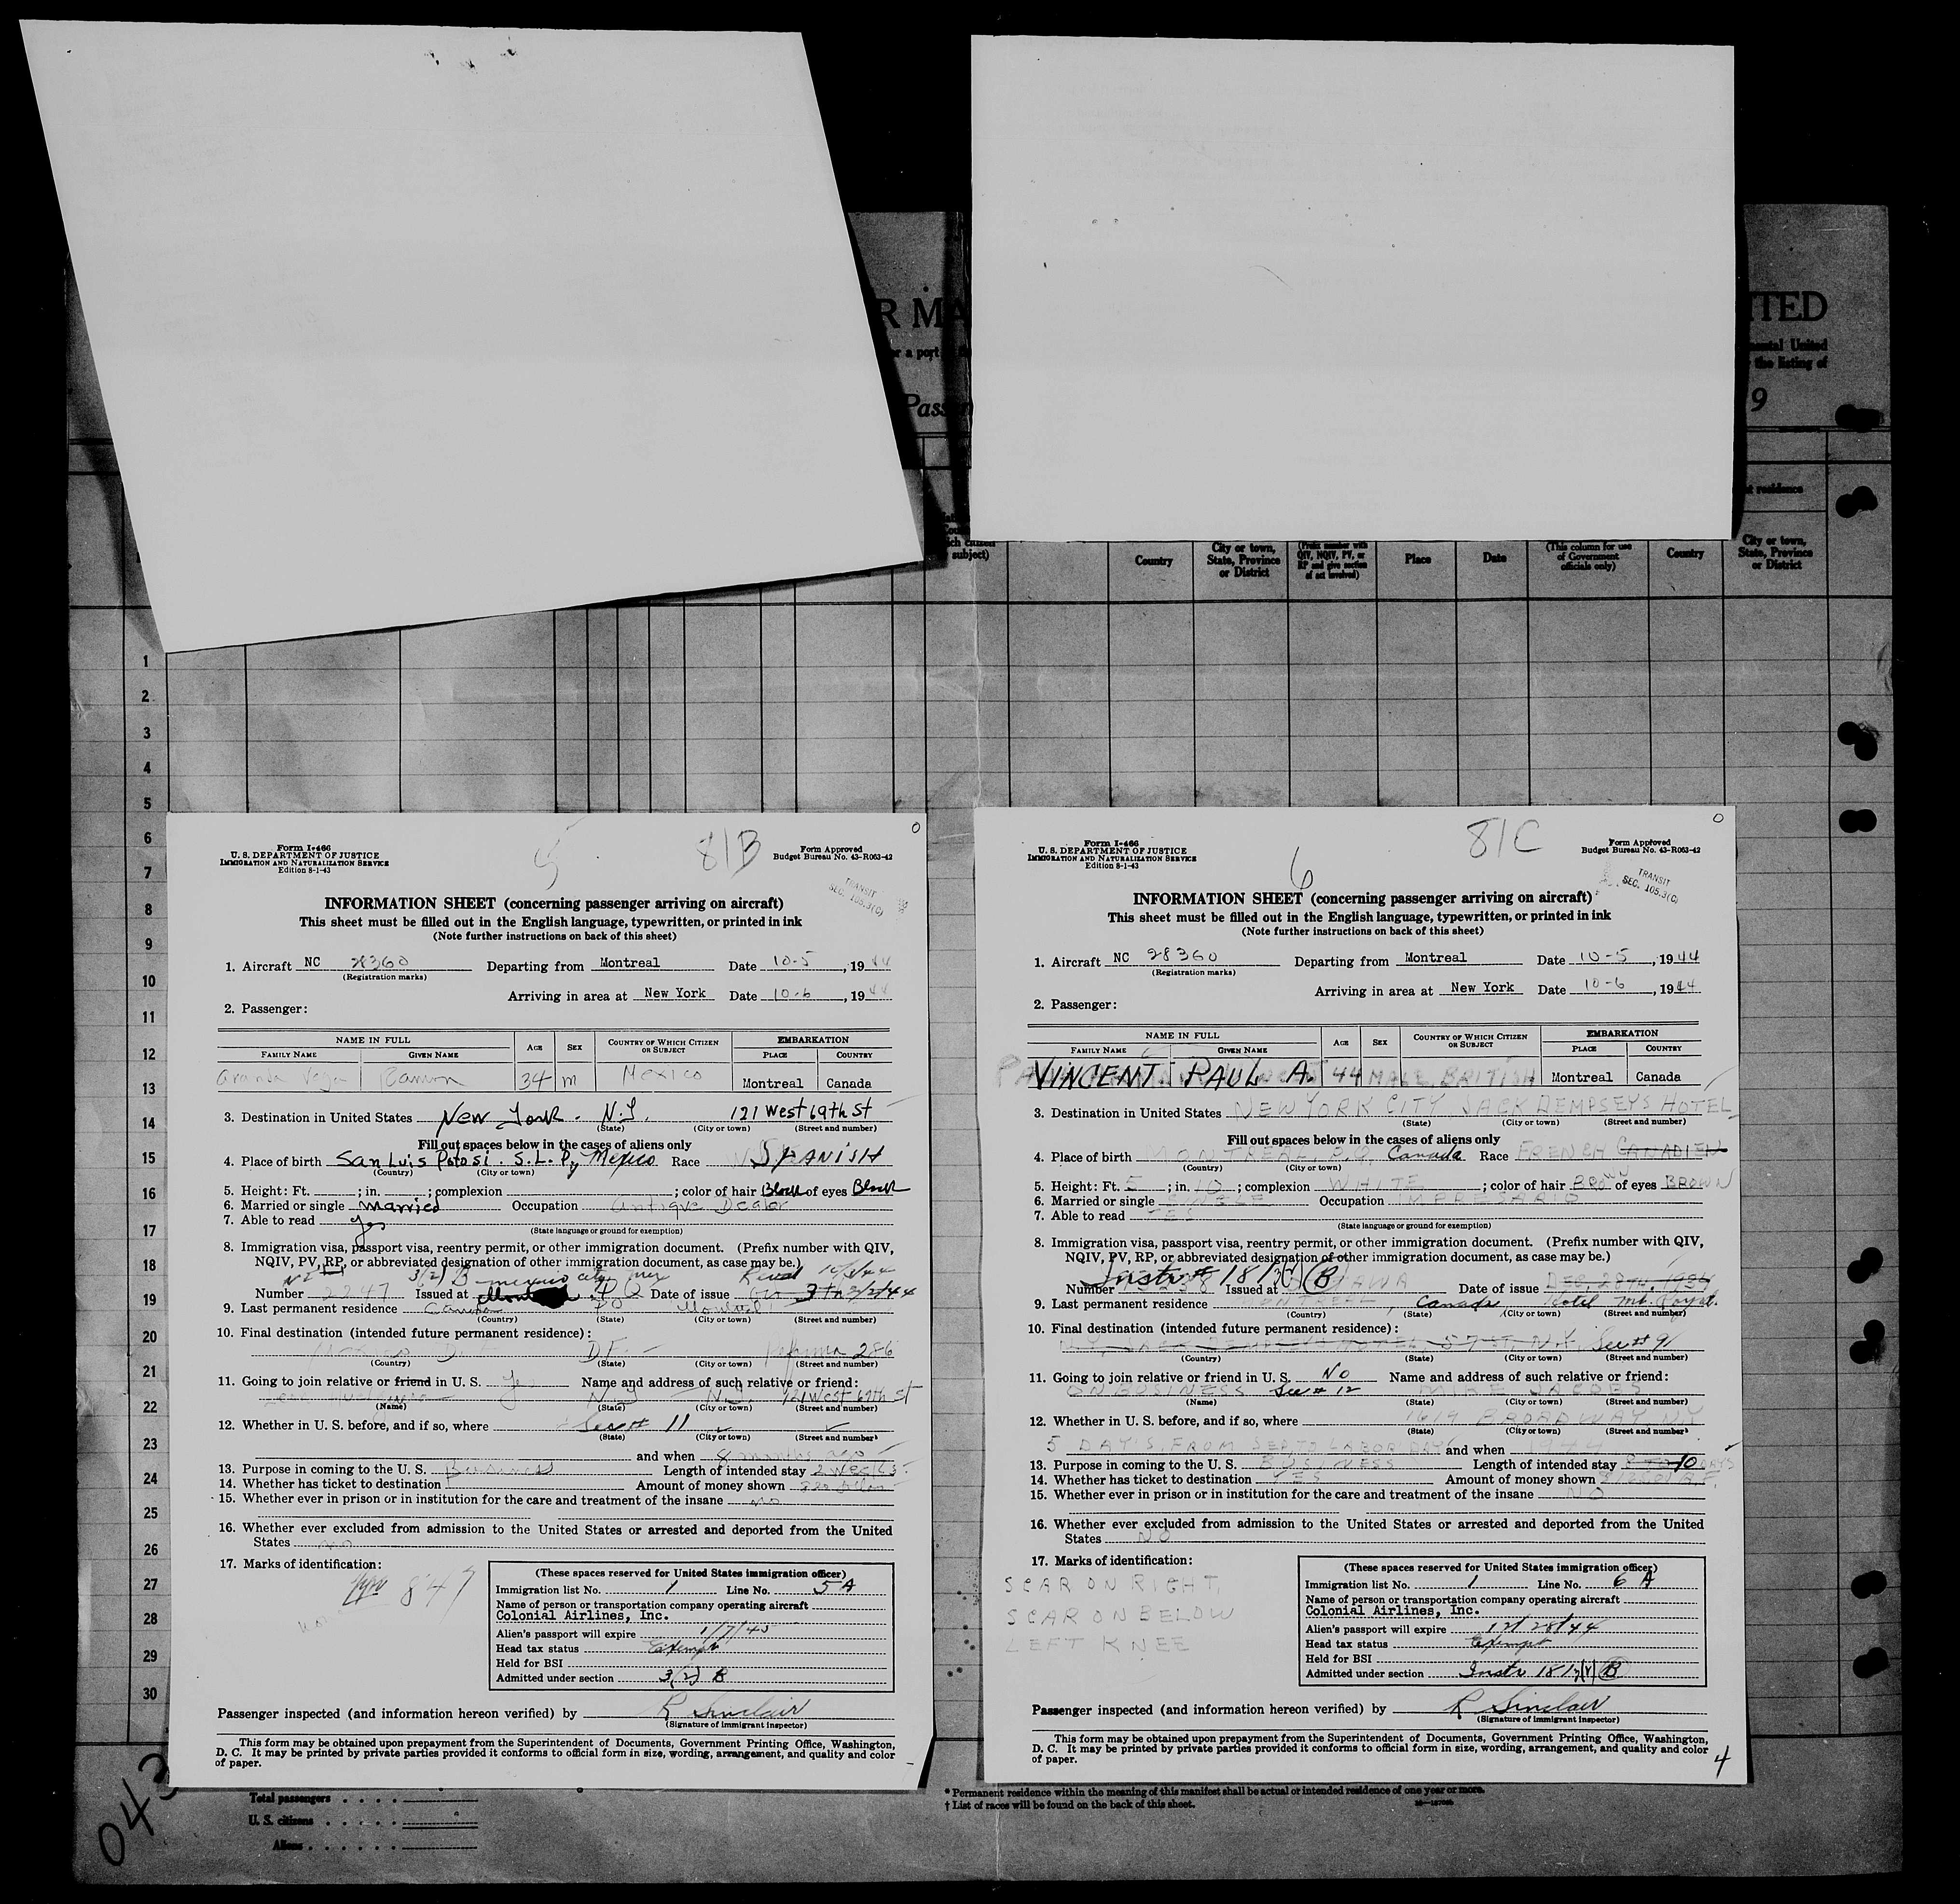 R MA
ITED
or a port
nental United
the listing of
Passen
9
residence
subject)
Country
City or town,
State, Province
or District
(Prefix number with
QIV, NQIV, PV, or
RP and give section
of act involved)
Place
Date
(This column for use
of Government
officials only)
Country
City or town,
State, Province
or District
1
2
3
4
5
6
7
8
9
10
11
12
13
14
15
16
17
18
19
20
21
22
23
24
25
26
27
28
29
30
5
81B
Form I-466
U. S. DEPARTMENT OF JUSTICE
IMMIGRATION AND NATURALIZATION SERVICE
Edition 8-1-43
Form Approved
Budget Bureau No. 43-R063-42
TRANSIT
SEC. 105.3(C)
INFORMATION SHEET (concerning passenger arriving on aircraft)
This sheet must be filled out in the English language, typewritten, or printed in ink
(Note further instructions on back of this sheet)
1. Aircraft NC 28360 Departing from Montreal Date 10-5, 1944
(Registration marks)
Arriving in area at New York Date 10-6, 1944
2. Passenger:
NAME IN FULL AGE SEX COUNTRY OF WHICH CITIZEN OR SUBJECT EMBARKATION
FAMILY NAME GIVEN NAME PLACE COUNTRY
Aranda Vega Ramon 34 m Mexico Montreal Canada
3. Destination in United States New York - N.Y. 121 West 69th St
(State) (City or town) (Street and number)
Fill out spaces below in the cases of aliens only
4. Place of birth San Luis Potosi. S.L.P, Mexico Race SPANISH
(Country) (City or town)
5. Height: Ft. ; in. ; complexion ; color of hair Black of eyes Black
6. Married or single Married Occupation Antique Dealer
7. Able to read Yes
(State language or ground for exemption)
8. Immigration visa, passport visa, reentry permit, or other immigration document. (Prefix number with QIV,
NQIV, PV, RP, or abbreviated designation of other immigration document, as case may be.)
3(2) B mexico city mex
Number 2247 Issued at P Q Date of issue
9. Last permanent residence Canada P Q Montreal
(Country) (State) (City or town) (Street and number)
10. Final destination (intended future permanent residence):
D.F. Reforma 286
(Country) (State) (City or town) (Street and number)
11. Going to join relative or friend in U. S. Yes Name and address of such relative or friend:
N.Y. N.Y. 121 West 69th St
(Name) (State) (City or town) (Street and number)
12. Whether in U. S. before, and if so, where See # 11
(State) (City or town) (Street and number)
and when 8 months ago
13. Purpose in coming to the U. S. Business Length of intended stay 2 weeks
14. Whether has ticket to destination Amount of money shown
15. Whether ever in prison or in institution for the care and treatment of the insane no
16. Whether ever excluded from admission to the United States or arrested and deported from the United
States no
17. Marks of identification:
(These spaces reserved for United States immigration officer)
Immigration list No. 1 Line No. 5 A
Name of person or transportation company operating aircraft
Colonial Airlines, Inc.
Alien's passport will expire 1/7/45
Head tax status Exempt
Held for BSI
Admitted under section 3(2) B
Passenger inspected (and information hereon verified) by R Sinclair
(Signature of immigrant inspector)
This form may be obtained upon prepayment from the Superintendent of Documents, Government Printing Office, Washington,
D. C. It may be printed by private parties provided it conforms to official form in size, wording, arrangement, and quality and color
of paper.
6
81C
Form I-466
U. S. DEPARTMENT OF JUSTICE
IMMIGRATION AND NATURALIZATION SERVICE
Edition 8-1-43
Form Approved
Budget Bureau No. 43-R063-42
TRANSIT
SEC. 105.3(C)
INFORMATION SHEET (concerning passenger arriving on aircraft)
This sheet must be filled out in the English language, typewritten, or printed in ink
(Note further instructions on back of this sheet)
1. Aircraft NC 28360 Departing from Montreal Date 10-5, 1944
(Registration marks)
Arriving in area at New York Date 10-6, 1944
2. Passenger:
NAME IN FULL AGE SEX COUNTRY OF WHICH CITIZEN OR SUBJECT EMBARKATION
FAMILY NAME GIVEN NAME PLACE COUNTRY
VINCENT PAUL A. 44 MALE BRITISH Montreal Canada
3. Destination in United States NEW YORK CITY JACK DEMPSEYS HOTEL
(State) (City or town) (Street and number)
Fill out spaces below in the cases of aliens only
4. Place of birth MONTREAL, P.Q. Canada Race FRENCH CANADIEN
(Country) (City or town)
5. Height: Ft. 5 ; in. 10 ; complexion WHITE ; color of hair BROWN of eyes BROWN
6. Married or single SINGLE Occupation IMPRESARIO
7. Able to read YES
(State language or ground for exemption)
8. Immigration visa, passport visa, reentry permit, or other immigration document. (Prefix number with QIV,
NQIV, PV, RP, or abbreviated designation of other immigration document, as case may be.)
Number Instr # 181 B Issued at OTTAWA Date of issue
9. Last permanent residence MONTREAL, Canada Hotel Mt. Royal.
(Country) (State) (City or town) (Street and number)
10. Final destination (intended future permanent residence):
See # 9
(Country) (State) (City or town) (Street and number)
11. Going to join relative or friend in U. S. NO Name and address of such relative or friend:
ON BUSINESS See # 12 MIKE JACOBS
(Name) (State) (City or town) (Street and number)
12. Whether in U. S. before, and if so, where 1619 BROADWAY NY
(State) (City or town) (Street and number)
5 DAYS FROM SEPT. LABOR DAY and when 1944
13. Purpose in coming to the U. S. BUSINESS Length of intended stay 10 DAYS
14. Whether has ticket to destination YES Amount of money shown
15. Whether ever in prison or in institution for the care and treatment of the insane NO
16. Whether ever excluded from admission to the United States or arrested and deported from the United
States NO
17. Marks of identification:
SCAR ON RIGHT
SCAR ON BELOW
LEFT KNEE
(These spaces reserved for United States immigration officer)
Immigration list No. 1 Line No. 6 A
Name of person or transportation company operating aircraft
Colonial Airlines, Inc.
Alien's passport will expire 12/28/44
Head tax status Exempt
Held for BSI
Admitted under section Instr 181 B
Passenger inspected (and information hereon verified) by R Sinclair
(Signature of immigrant inspector)
This form may be obtained upon prepayment from the Superintendent of Documents, Government Printing Office, Washington,
D. C. It may be printed by private parties provided it conforms to official form in size, wording, arrangement, and quality and color
of paper.
4
043
Total passengers
U. S. citizens
Aliens
* Permanent residence within the meaning of this manifest shall be actual or intended residence of one year or more.
† List of races will be found on the back of this sheet.